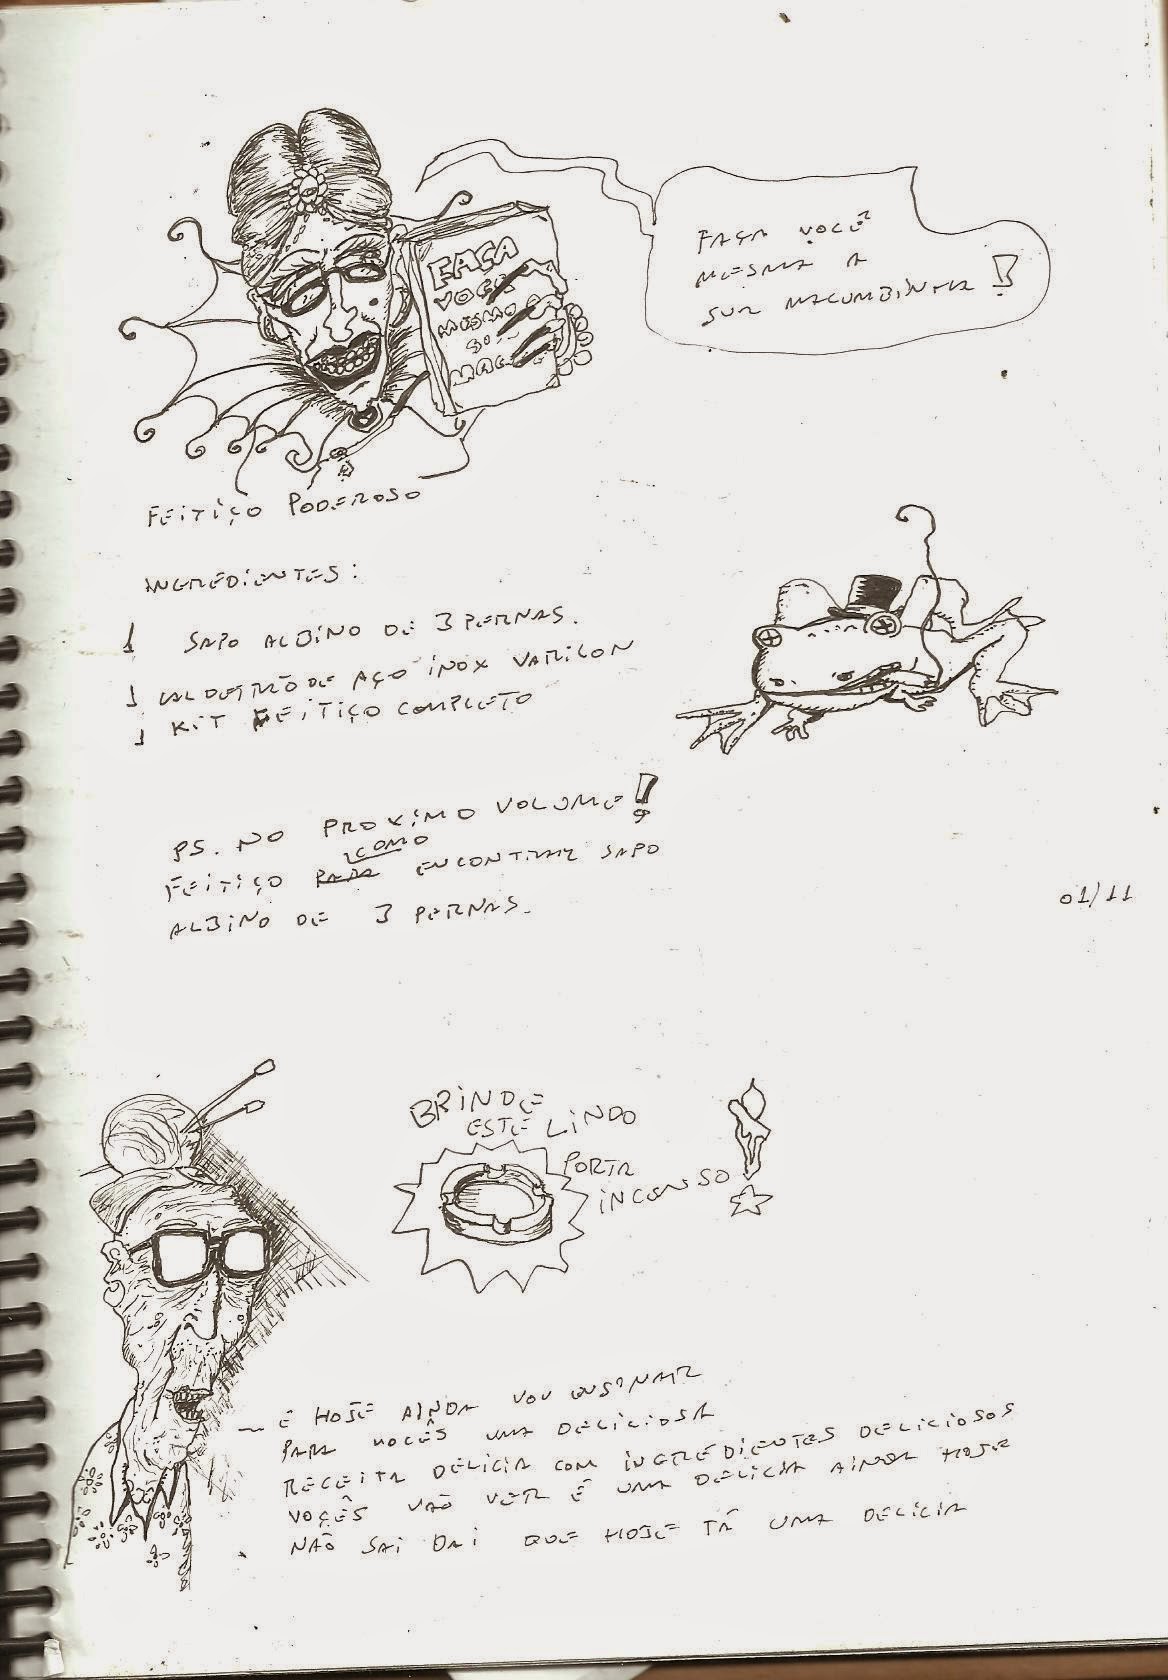 FAÇA
VOCÊ
MESMO
SO
MAC
FAÇA VOCÊ
MESMA A
SUA MACUMBINHA!
FEITIÇO PODEROSO
INGREDIENTES:
1 SAPO ALBINO DE 3 PERNAS.
1 CALDEIRÃO DE AÇO INOX
1 KIT FEITIÇO COMPLETO
PS. NO PROXIMO VOLUME!
COMO
FEITIÇO PARA ENCONTRAR SAPO
ALBINO DE 3 PERNAS.
01/11
BRINDE
ESTE LINDO
PORTA
INCENSO
— E HOJE AINDA VOU ENSINAR
PARA VOCÊS UMA DELICIOSA
RECEITA DELICIA COM INGREDIENTES DELICIOSOS
VOÇÊS VÃO VER É UMA DELICIA AINDA HOJE
NÃO SAI DAI QUE HOJE TÁ UMA DELICIA